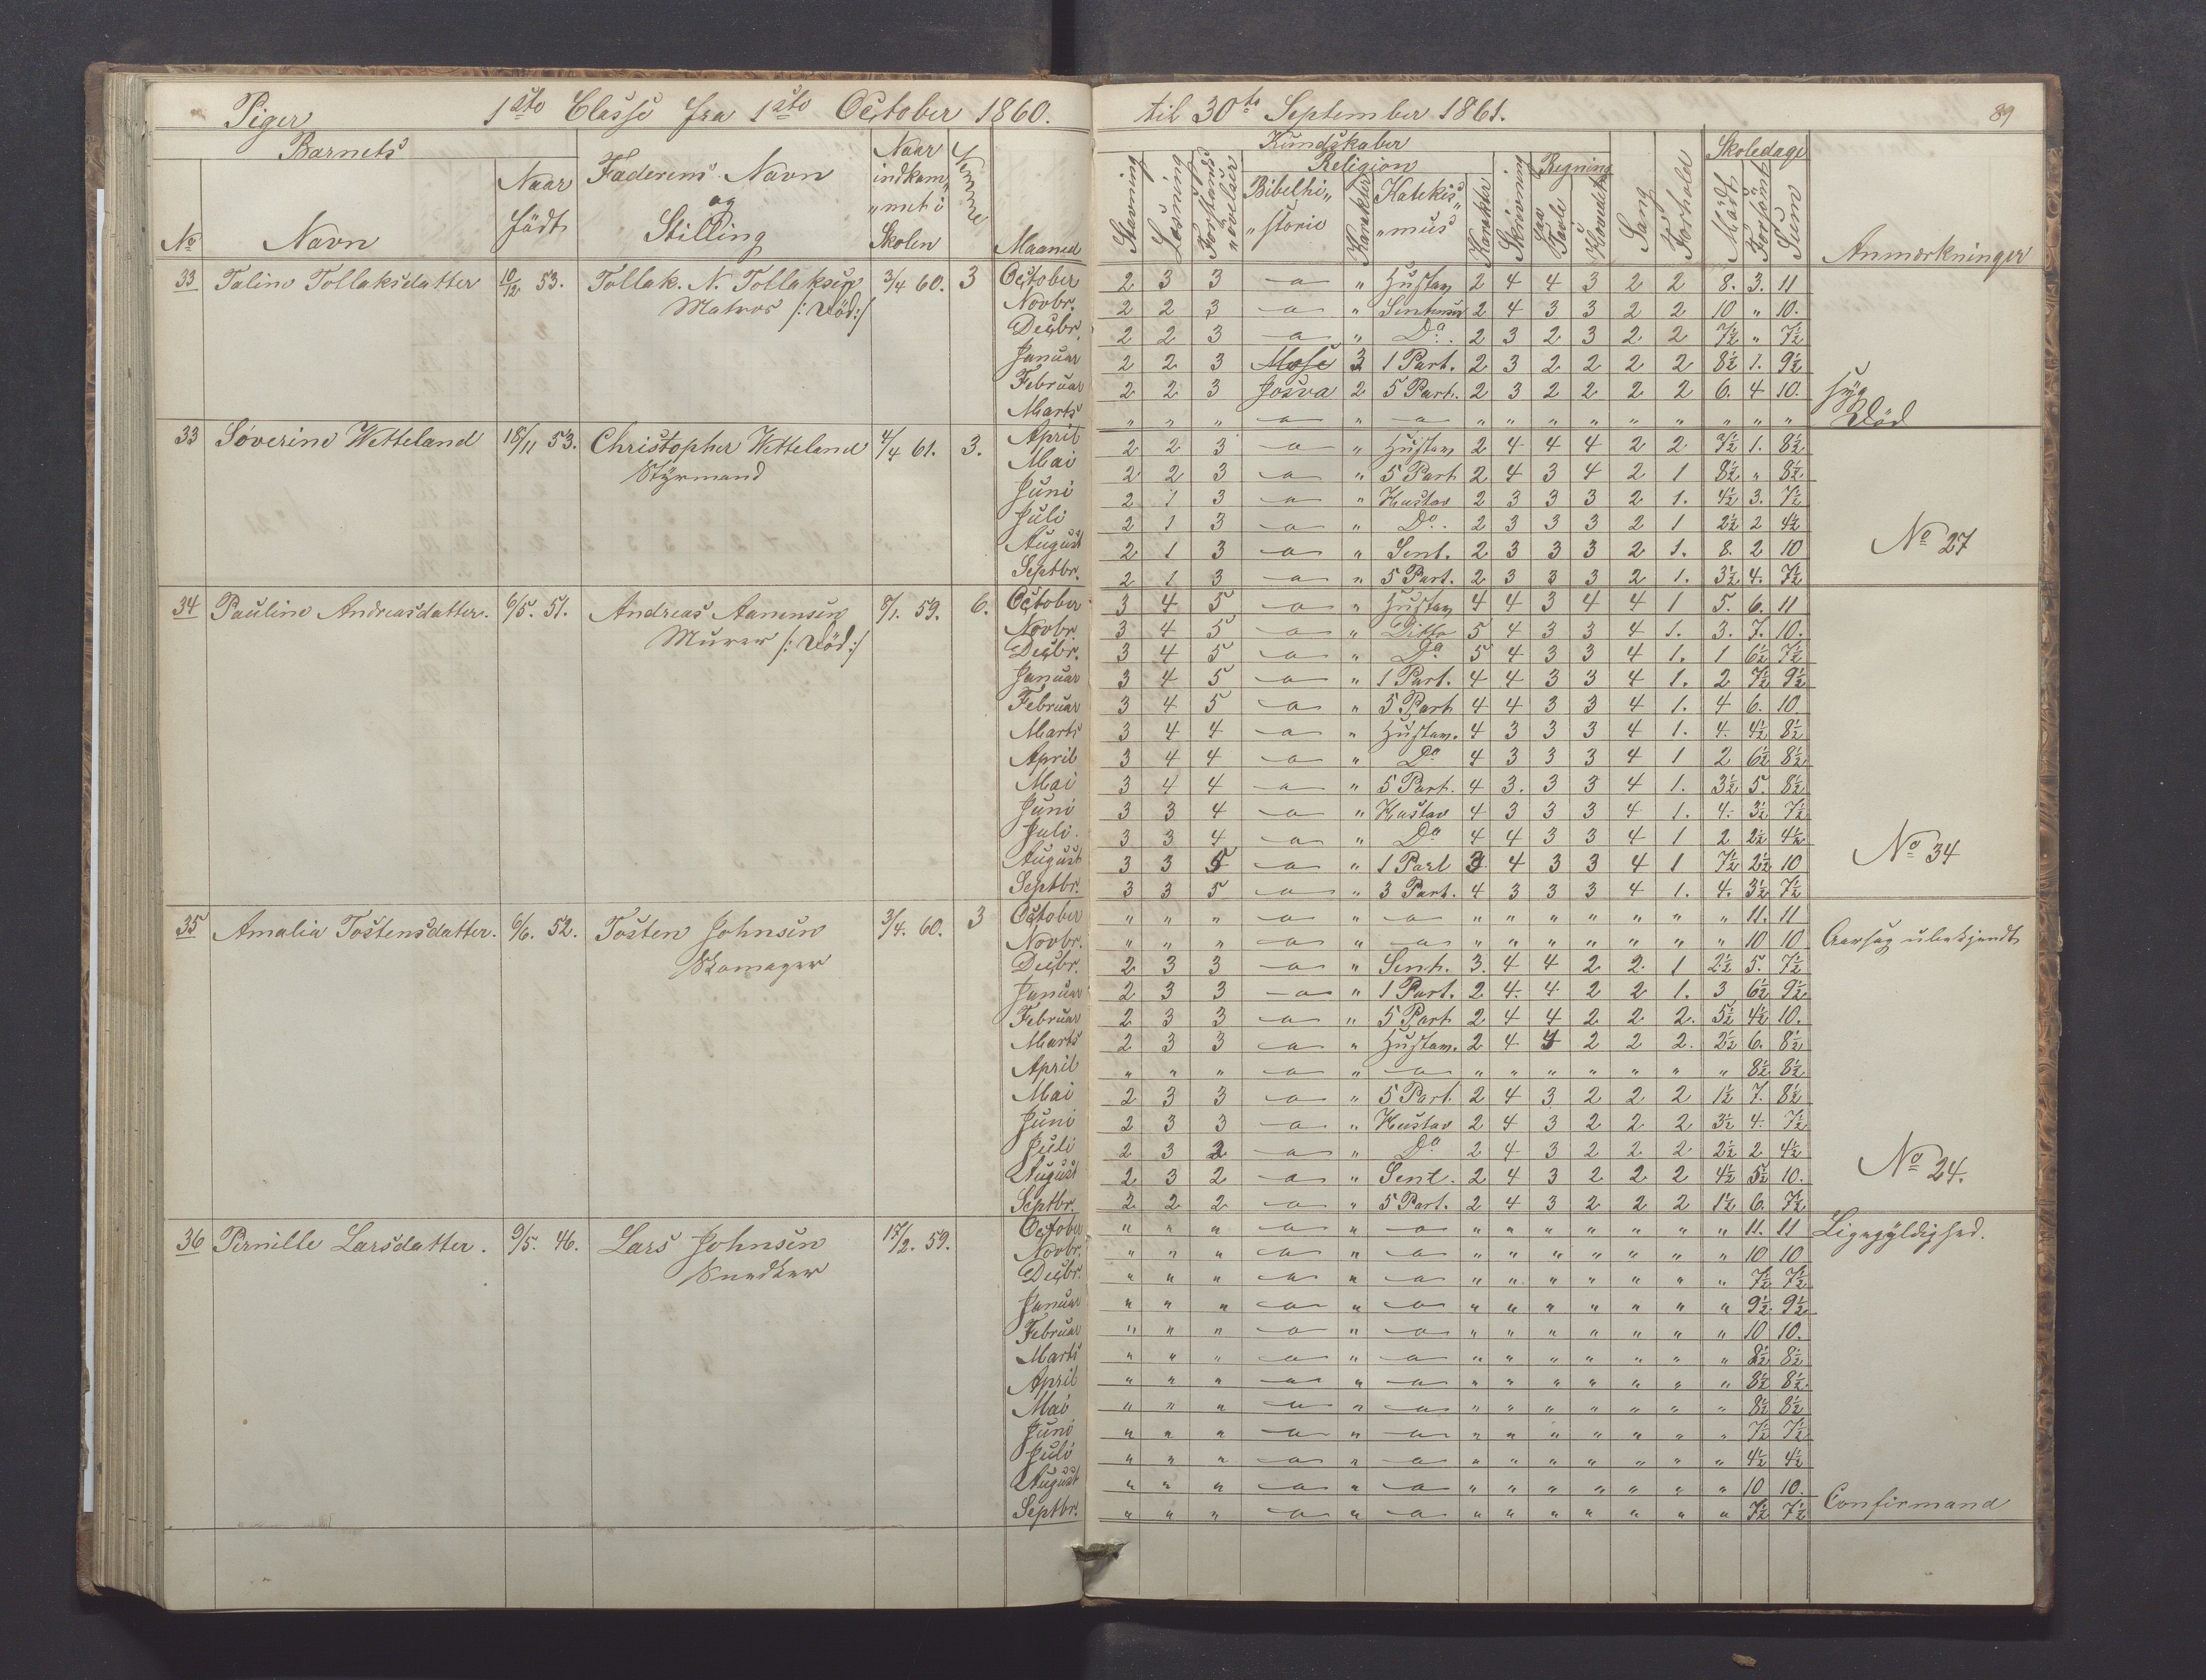 Piger 1ste Classe fra 1ste October 1860. til 30te September 1861. 89
Barnets Faderens Navn og Stilling Naar indkom„ „met i Skolen Evne Maaned Kundskaber Skoledage Anmærkninger
No Navn Naar født Stavning Læsning Forstands „øvelser Religion Bibelhi„ „storie Karakter Katekis„ „mus Karakter Skrivning Regning Paa Tavle I Hovedet Sang Forhold Mødt Forsømt Sum
33 Taline Tollaksdatter 10/12 53. Tollak. N. Tollaksen 3/4 60. 3 October 2 3 3 — " Hustav 2 4 4 3 2 2 8. 3. 11
Matros /: Död :/ Novbr. 2 2 3 — " 2 4 3 3 2 2 10 " 10.
Decbr. 2 2 3 — " Do. 2 3 2 3 2 2 7½ " 7½
Januar 2 2 3 Mose 3 1 Part. 2 3 2 2 2 2 8½ 1. 9½
Februar 2 2 3 Josva 2 5 Part. 2 3 2 2 2 2 6. 4 10. Syg
Marts " " " — " — " " " " " " " " " Död
33 Söverine Wetteland 18/11 53. Christopher Wetteland 4/4 61. 3. April 2 2 3 — " Hustav 2 4 4 4 2 2 7½ 1. 8½
Styrmand Mai 2 2 3 — " 5 Part 2 4 3 4 2 1 8½ " 8½
Juni 2 1 3 — " Hustav 2 3 3 3 2 1. 4½ 3. 7½
Juli 2 1 3 — " Do. 2 3 3 3 2 1 2½ 2 4½
August 2 1 3 — " Sent. 2 3 3 3 2 1. 8. 2 10 No 27
Septbr. 2 1 3 — " 5 Part. 2 3 3 3 2 1. 3½ 4. 7½
34 Pauline Andreasdatter. 6/5. 51. Andreas Aanensen 8/1. 59. 6. October 3 4 5 — " Hustav 4 4 3 4 4 1 5. 6. 11
Murer /: Död :/ Novbr. 3 4 5 — " Ditto 5 4 3 3 4 1. 3. 7. 10.
Decbr. 3 4 5 — " Do 5 4 3 3 4 1. 1 6½ 7½
Januar 3 4 5 — " 1 Part. 4 4 3 3 4 1. 2 7½ 9½
Februar 3 4 5 — " 5 Part 4 4 3 3 4 1. 4 6. 10.
Marts 3 4 4 — " Hustav. 4 3 3 3 4 1. 4. 4½ 8½
April 3 4 4 — " Do 4 3 3 3 4 1 2 6½ 8½
Mai 3 4 4 — " 5 Part. 4 3. 3 3 4 1. 3½ 5. 8½
Juni 3 3 4 — " Hustav 4 3 3 3 4 1. 4. 3½ 7½
Juli 3 3 4 — " Do 4 4 3 3 4 1 2 2½ 4½
August 3 3 5 — " 1 Part 3 4 3 3 4 1 7½ 2½ 10 No 34
Septbr. 3 3 5 — " 3 Part. 4 3 3 3 4 1. 4. 3½ 7½
35 Amalia Tostensdatter. 6/6. 52. Tosten Johnsen 3/4. 60. 3 October " " " — " — " " " " " " " 11. 11
Skomager Novbr. " " " — " — " " " " " " " 10 10 Aarsag ubekjendt
Decbr. 2 3 3 — " Sent. 3. 4 4 2 2 1 2½ 5. 7½
Januar 2 3 3 — " 1 Part. 2 4. 4 2 2 1. 3 6½ 9½
Februar 2 3 3 — " 5 Part 2 4 4 2 2 2. 5½ 4½ 10.
Marts 2 3 3 — " Hustav. 2 4 3 2 2 2. 2½ 6. 8½
April " " " — " — " " " " " " " 8½ 8½
Mai 2 3 3 — " 5 Part. 2 4 3 2 2 2 1½ 7. 8½
Juni 2 3 3 — " Hustav 2 4 3 2 2 2 3½ 4. 7½
Juli 2 3 2 — " Do 2 4 3 2 2 2 2½ 2 4½
August 2 3 2 — " Sent. 2 4 3 2 2 2 4½ 5½ 10. No 24.
Septbr. 2 2 2 — " 5 Part. 2 4 3 2 2 2 1½ 6. 7½
36 Pernille Larsdatter. 9/5. 46. Lars Johnsen 17/2. 59. October " " " — " — " " " " " " " 11. 11 Ligegyldighed.
Snedker Novbr. " " " — " — " " " " " " " 10 10
Decbr. " " " — " — " " " " " " " 7½ 7½
Januar " " " — " — " " " " " " " 9½ 9½
Februar " " " — " — " " " " " " " 10 10.
Marts " " " — " — " " " " " " " 8½ 8½
April " " " — " — " " " " " " " 8½ 8½
Mai " " " — " — " " " " " " " 8½ 8½
Juni " " " — " — " " " " " " " 7½ 7½
Juli " " " — " — " " " " " " " 4½ 4½
August " " " — " — " " " " " " " 10 10.
Septbr. " " " — " — " " " " " " " 7½ 7½ Confirmand